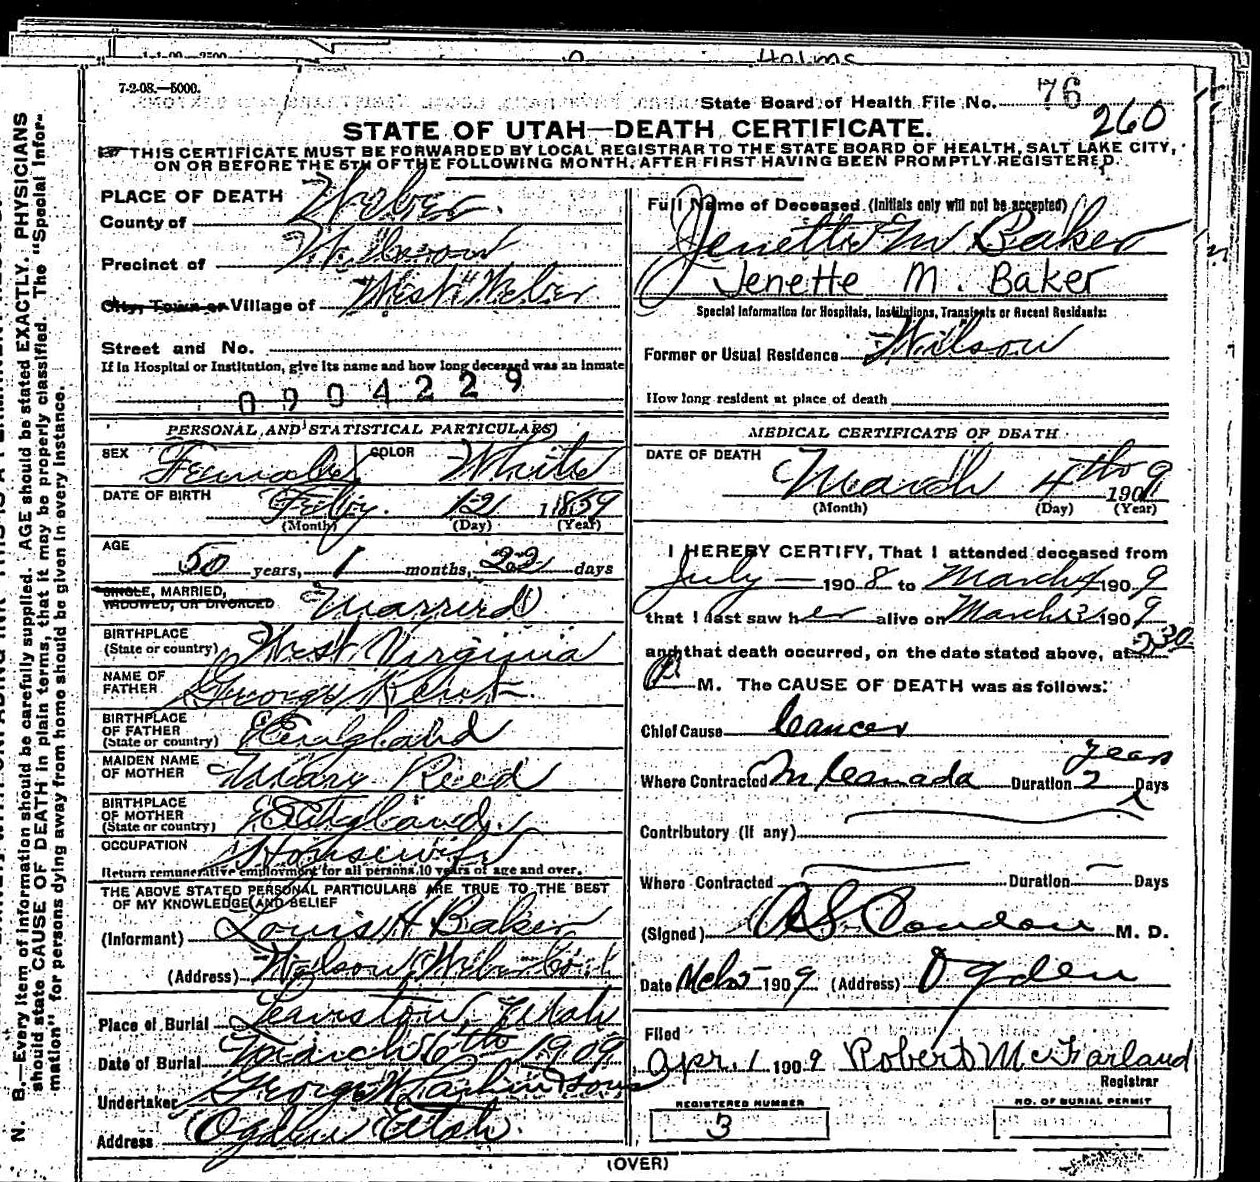 Holms
7-2-08.—5000.
State Board of Health File No. 76
260
STATE OF UTAH—DEATH CERTIFICATE.
THIS CERTIFICATE MUST BE FORWARDED BY LOCAL REGISTRAR TO THE STATE BOARD OF HEALTH, SALT LAKE CITY,
ON OR BEFORE THE 5TH OF THE FOLLOWING MONTH, AFTER FIRST HAVING BEEN PROMPTLY REGISTERED.
N. B.—Every item of information should be carefully supplied. AGE should be stated EXACTLY. PHYSICIANS
should state CAUSE OF DEATH in plain terms, that it may be properly classified. The "Special Infor-
mation" for persons dying away from home should be given in every instance.
PLACE OF DEATH
County of Weber
Precinct of Wilson
City, Town or Village of West Weber
Street and No.
If in Hospital or Institution, give its name and how long deceased was an inmate
0904229
PERSONAL AND STATISTICAL PARTICULARS
SEX Female COLOR White
DATE OF BIRTH Feby. 12 1859
(Month) (Day) (Year)
AGE
50 years, 1 months, 22 days
SINGLE, MARRIED,
WIDOWED, OR DIVORCED Married
BIRTHPLACE
(State or country) West Virginia
NAME OF
FATHER George
BIRTHPLACE
OF FATHER
(State or country) England
MAIDEN NAME
OF MOTHER Mary Reed
BIRTHPLACE
OF MOTHER
(State or country) England
OCCUPATION Housewife
Return remunerative employment for all persons 10 years of age and over.
THE ABOVE STATED PERSONAL PARTICULARS ARE TRUE TO THE BEST
OF MY KNOWLEDGE AND BELIEF
(Informant) Louis H Baker
(Address) Wilson, Weber Co.
Place of Burial Lewiston Utah
Date of Burial March 6th 1909
Undertaker George W Larkin Sons
Address Ogden Utah.
Full Name of Deceased. (Initials only will not be accepted)
Jenette M Baker
Jenette M. Baker
Special Information for Hospitals, Institutions, Transients or Recent Residents:
Former or Usual Residence Wilson
How long resident at place of death
MEDICAL CERTIFICATE OF DEATH
DATE OF DEATH March 4th 1909
(Month) (Day) (Year)
I HEREBY CERTIFY, That I attended deceased from
July — 1908 to March 4 1909
that I last saw her alive on March 3 1909
and that death occurred, on the date stated above, at 2 30
P M. The CAUSE OF DEATH was as follows:
Chief Cause Cancer
Where Contracted In Canada Duration 2 years Days
Contributory (if any)
Where Contracted — Duration — Days
(Signed) A S Condon M. D.
Date Mch 5 1909 (Address) Ogden
Filed
Apr. 1 1909 Robert McFarland
Registrar
REGISTERED NUMBER
3
NO. OF BURIAL PERMIT
(OVER)